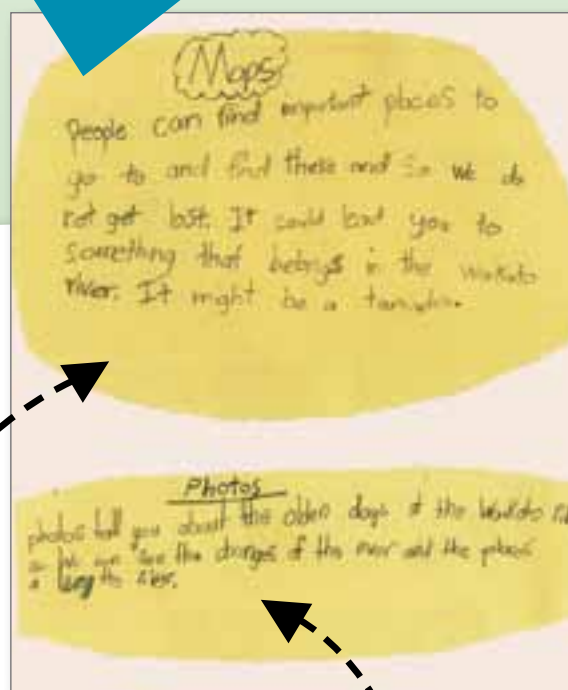 Maps
People can find important places to
go to and find these and so we do
not get lost. It could lead you to
something that belongs in the Waikato
river. It might be a taniwha.
Photos
photos tell you about the olden days of the Waikato
we can see the changes of the river and the places
the river.